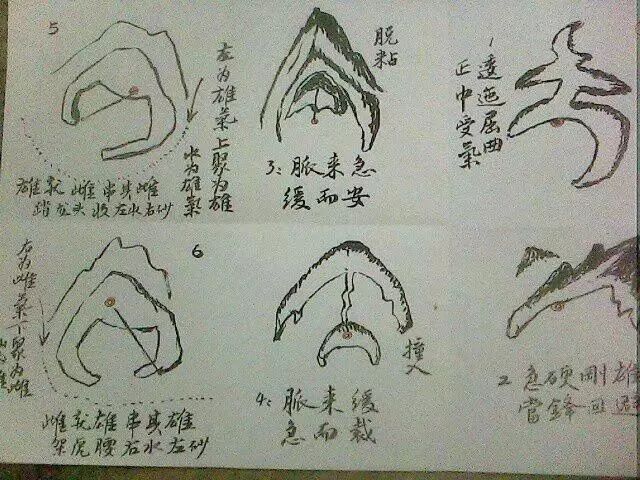 1
逶迤屈曲
正中受氣
2 急硬剛雄
當鋒回
脱粘
3: 脈来急
緩而安
4: 脈来緩
急而裁
撞入
5
左为雄氣上聚为雄
水为雄氣
雄龙雌串其雌
踏龙头收左水右砂
6
右为雌氣下聚为雌
雌龙雄串其雄
架虎腰右水左砂